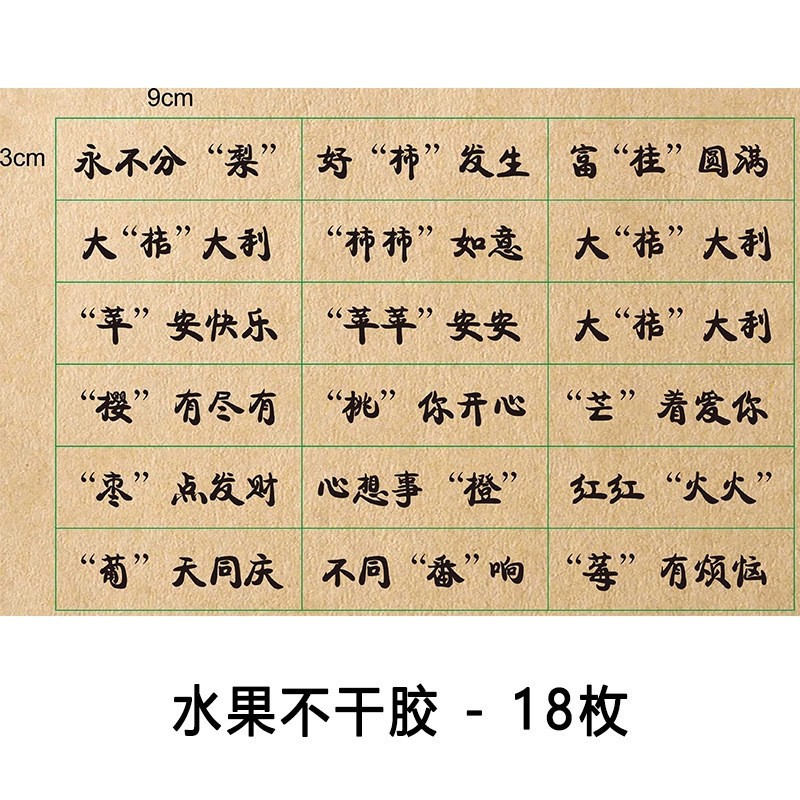 9cm
3cm
永不分“梨” 好“柿”发生 富“桂”圆满
大“桔”大利 “柿柿”如意 大“桔”大利
“苹”安快乐 “苹苹”安安 大“桔”大利
“樱”有尽有 “挑”你开心 “芒”着爱你
“枣”点发财 心想事“橙” 红红“火火”
“葡”天同庆 不同“番”响 “莓”有烦恼
水果不干胶 - 18枚